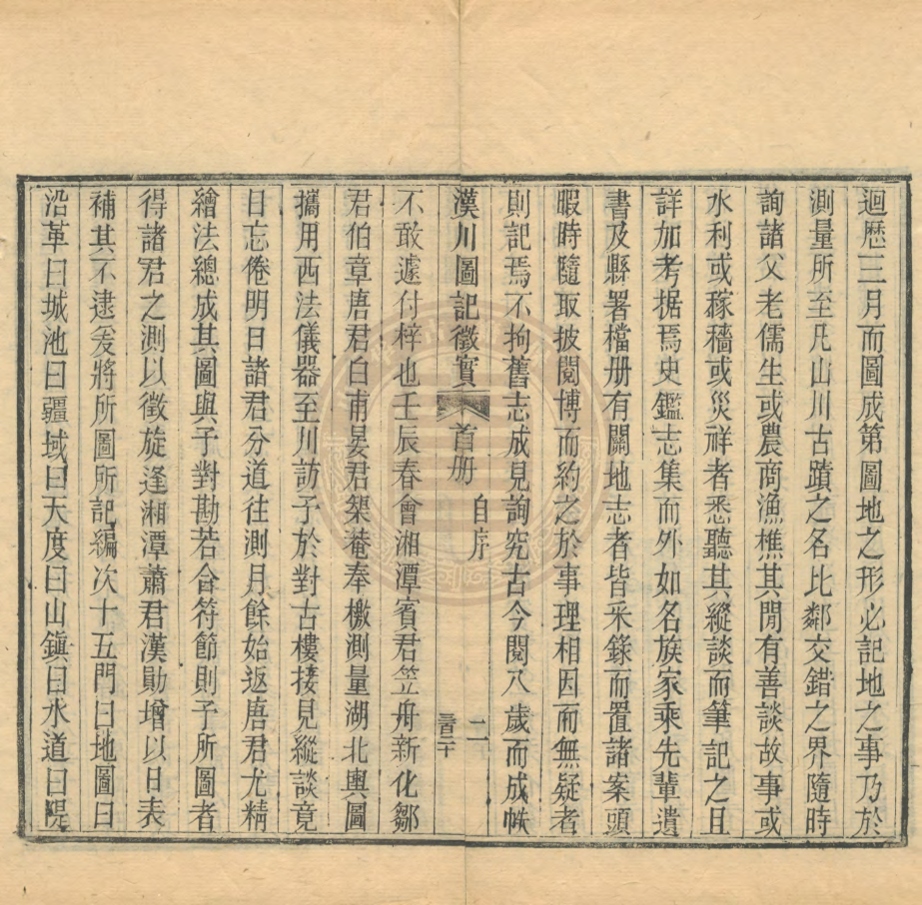 迴歷三月而圖成第圖地之形必記地之事乃於
測量所至凡山川古蹟之名比鄰交錯之界隨時
詢諸父老儒生或農商漁樵其閒有善談故事或
水利或稼穡或災祥者悉聽其縱談而筆記之且
詳加考据焉史鑑志集而外如名族家乘先輩遺
書及縣署檔册有關地志者皆采錄而置諸案頭
暇時隨取披閱博而約之於事理相因而無疑者
則記焉不拘舊志成見詢究古今閱八歲而成帙
漢川圖記徵實 首册 自序 二
不敢遽付梓也壬辰春會湘潭賓君笠舟新化鄒
君伯章唐君白甫晏君榘菴奉檄測量湖北輿圖
攜用西法儀器至川訪予於對古樓接見縱談竟
日忘倦明日諸君分道往測月餘始返唐君尤精
繪法總成其圖與予對勘若合符節則予所圖者
得諸君之測以徵旋逢湘潭蕭君漢勛增以日表
補其不逮爰將所圖所記編次十五門曰地圖曰
沿革曰城池曰疆域曰天度曰山鎮曰水道曰隄